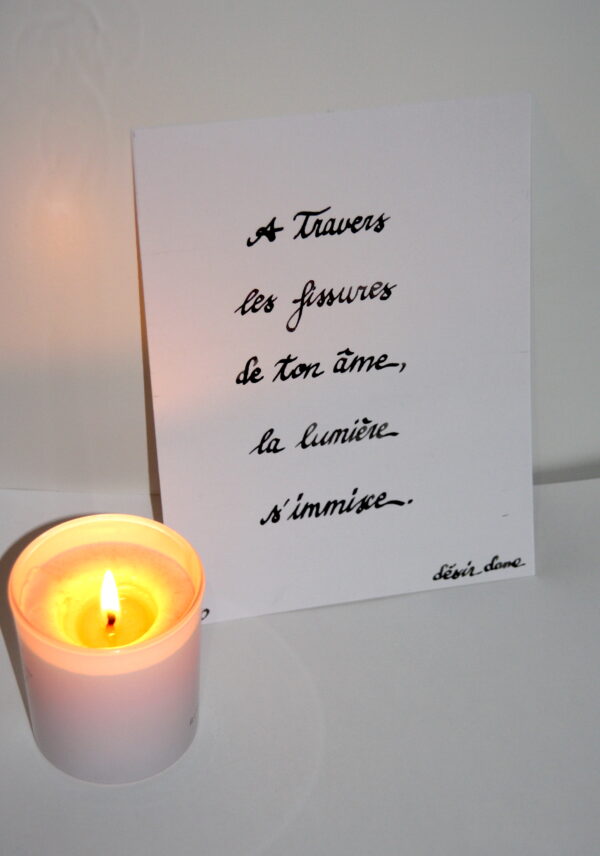 A Travers
les fissures
de ton âme,
la lumière
s'immisce.
désir dame